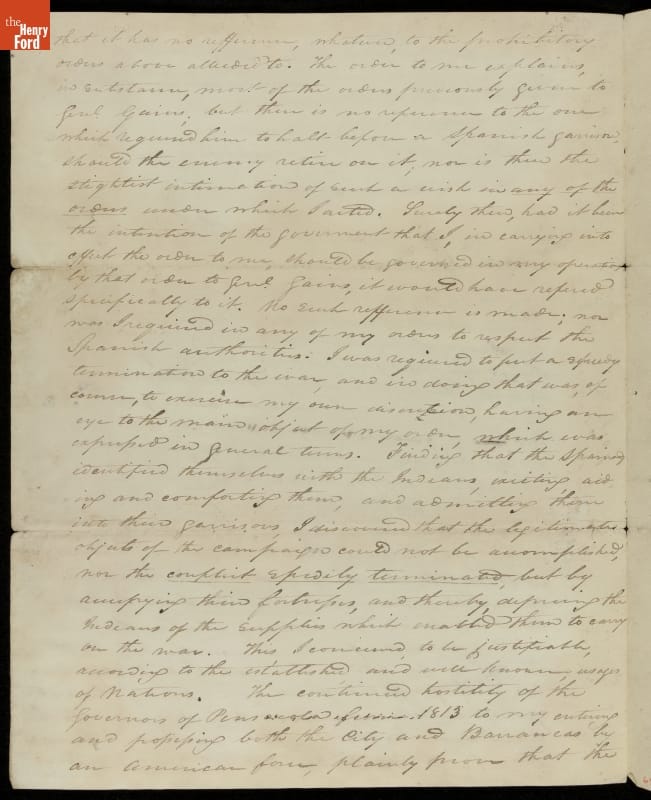 the
Henry
Ford
that it has no refference, whatever, to the prohibitory
orders above alluded to. The order to me explains,
in substance, most of the orders previously given to
Genl. Gains; but there is no reference to the one
which required him to halt before a Spanish garrison,
should the enemy retire on it; nor is there the
slightest intimation of such a wish in any of the
orders under which I acted. Surely then, had it been
the intention of the goverment that I, in carrying into
effect the order to me, should be governed in my operations
by that order to Genl. Gains, it would have refered
specifically to it. No such refference is made; nor
was I required in any of my orders to respect the
Spanish authorities. I was required to put a speedy
termination to the war, and in doing that was, of
course, to exercise my own discretion, having an
eye to the main object of my order, which was
expressed in general terms. Finding that the Spaniards
identified themselves with the Indians, exciting aid-
ing and comforting them, and admitting them
into their garrisons, I discovered that the legitimate
objects of the campaign could not be accomplished,
nor the conflict speedily terminated, but by
occupying their fortresses, and thereby, depriving the
Indians of the supplies which enabled them to carry
on the war. This I conceived, to be justifiable,
according to the established and well known, usages
of Nations. The continued hostility of the
Governors of Pensacola 1813 to my entering
and possessing both the City and Barrancas by
an American force, plainly prove that the